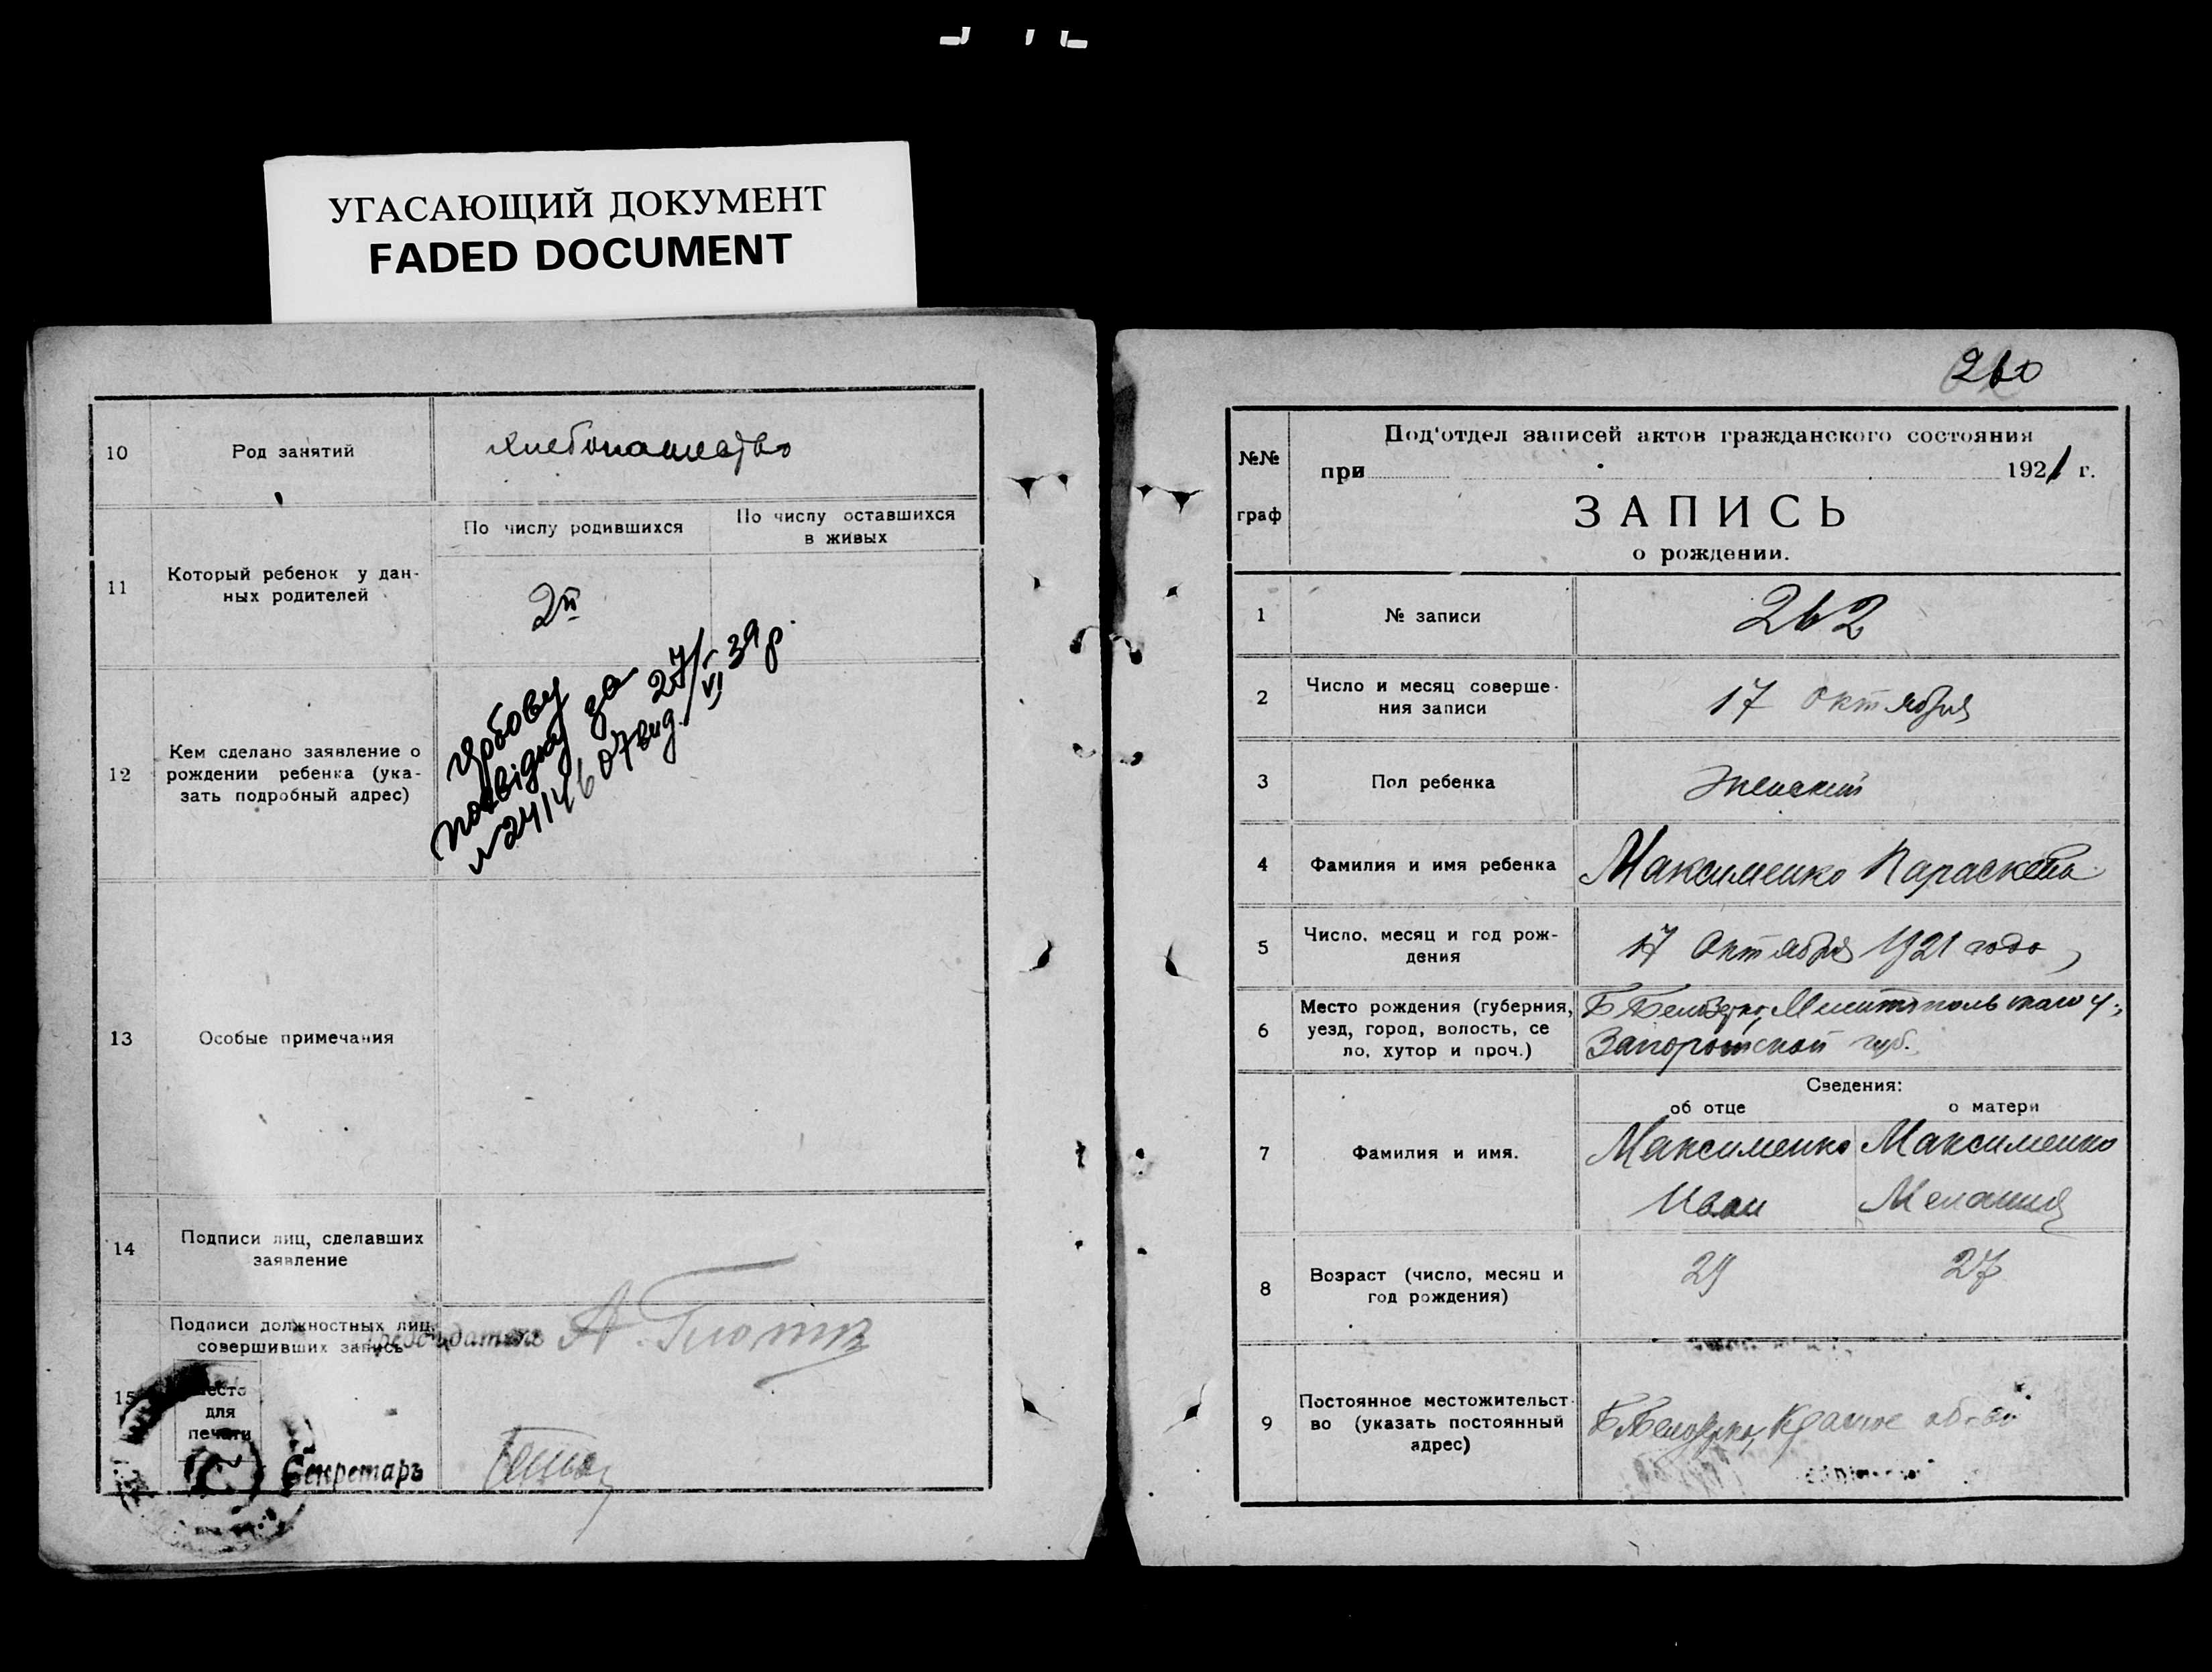 УГАСАЮЩИЙ ДОКУМЕНТ
FADED DOCUMENT
10
Род занятий
хлебопашество
11
Который ребенок у дан-
ных родителей
По числу родившихся
По числу оставшихся
в живых
2й
12
Кем сделано заявление о
рождении ребенка (ука-
зать подробный адрес)
повідку за
27/VI 39р.
13
Особые примечания
14
Подписи лиц, сделавших
заявление
15
Подписи должностных лиц,
совершивших запись
Председатель А.
Место
для
печати
Секретарь
260
№№
граф
Под'отдел записей актов гражданского состояния
при 1921 г.
ЗАПИСЬ
о рождении.
1
№ записи
262
2
Число и месяц соверше-
ния записи
17 октября
3
Пол ребенка
Женский
4
Фамилия и имя ребенка
Максименко Параскева
5
Число, месяц и год рож-
дения
17 Октября 1921 года
6
Место рождения (губерния,
уезд, город, волость, се
ло, хутор и проч.)
Б Белозерка, Мелитопольского у.,
Запорожской губ.
Сведения:
об отце
о матери
7
Фамилия и имя.
Максименко
Иван
Максименко
Мелания
8
Возраст (число, месяц и
год рождения)
29
27
9
Постоянное местожительст
во (указать постоянный
адрес)
Б Белозерка,